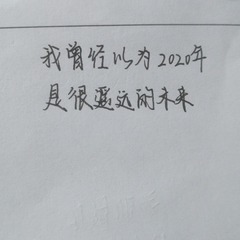 我曾经以为2020年
是很遥远的未来